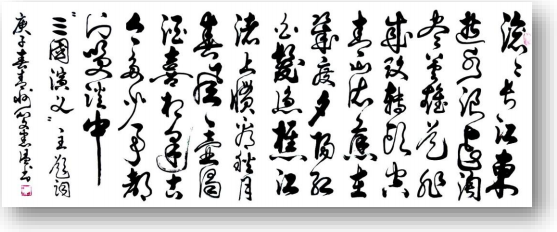 滚々长江東
逝水浪花淘
尽英雄是非
成败转头空
青山依旧在
几度夕陽红
白髮渔樵江
渚上惯看秋月
春風一壶濁
酒喜相逢古
今多少事都
付笑谈中
"三國演义"主题词
庚子春